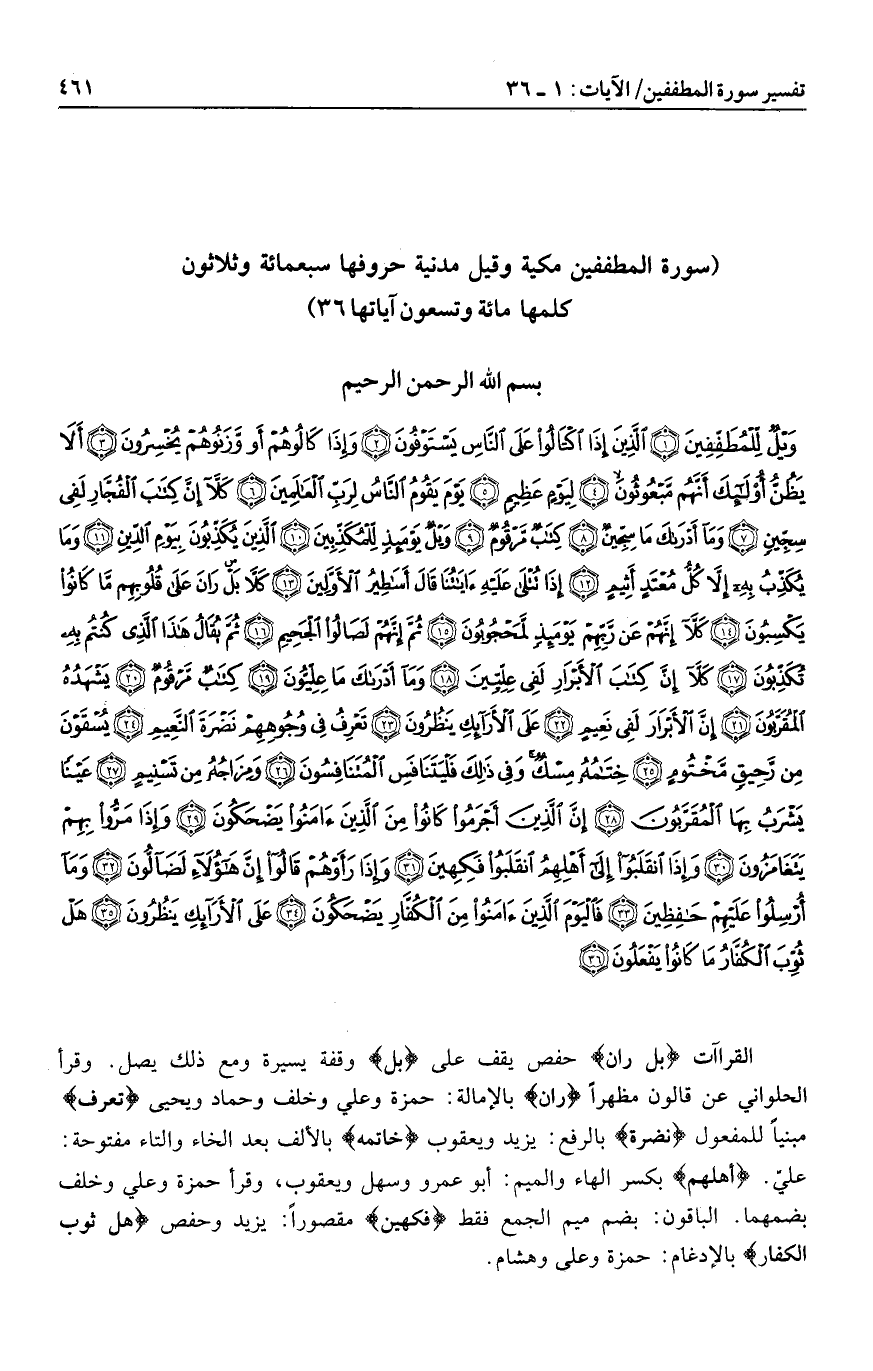 تفسير سورة المطففين/ الآيات: ١ - ٣٦ ٤٦١
(سورة المطففين مكية وقيل مدنية حروفها سبعمائة وثلاثون
كلمها مائة وتسعون آياتها ٣٦)
بسم الله الرحمن الرحيم
وَيْلٌ لِّلْمُطَفِّفِينَ ﴿١﴾ ٱلَّذِينَ إِذَا ٱكْتَالُوا۟ عَلَى ٱلنَّاسِ يَسْتَوْفُونَ ﴿٢﴾ وَإِذَا كَالُوهُمْ أَو وَّزَنُوهُمْ يُخْسِرُونَ ﴿٣﴾ أَلَا
يَظُنُّ أُو۟لَـٰٓئِكَ أَنَّهُم مَّبْعُوثُونَ ﴿٤﴾ لِيَوْمٍ عَظِيمٍ ﴿٥﴾ يَوْمَ يَقُومُ ٱلنَّاسُ لِرَبِّ ٱلْعَـٰلَمِينَ ﴿٦﴾ كَلَّآ إِنَّ كِتَـٰبَ ٱلْفُجَّارِ لَفِى
سِجِّينٍ ﴿٧﴾ وَمَآ أَدْرَىٰكَ مَا سِجِّينٌ ﴿٨﴾ كِتَـٰبٌ مَّرْقُومٌ ﴿٩﴾ وَيْلٌ يَوْمَئِذٍ لِّلْمُكَذِّبِينَ ﴿١٠﴾ ٱلَّذِينَ يُكَذِّبُونَ بِيَوْمِ ٱلدِّينِ ﴿١١﴾ وَمَا
يُكَذِّبُ بِهِۦٓ إِلَّا كُلُّ مُعْتَدٍ أَثِيمٍ ﴿١٢﴾ إِذَا تُتْلَىٰ عَلَيْهِ ءَايَـٰتُنَا قَالَ أَسَـٰطِيرُ ٱلْأَوَّلِينَ ﴿١٣﴾ كَلَّا بَلْ رَانَ عَلَىٰ قُلُوبِهِم مَّا كَانُوا۟
يَكْسِبُونَ ﴿١٤﴾ كَلَّآ إِنَّهُمْ عَن رَّبِّهِمْ يَوْمَئِذٍ لَّمَحْجُوبُونَ ﴿١٥﴾ ثُمَّ إِنَّهُمْ لَصَالُوا۟ ٱلْجَحِيمِ ﴿١٦﴾ ثُمَّ يُقَالُ هَـٰذَا ٱلَّذِى كُنتُم بِهِۦ
تُكَذِّبُونَ ﴿١٧﴾ كَلَّآ إِنَّ كِتَـٰبَ ٱلْأَبْرَارِ لَفِى عِلِّيِّينَ ﴿١٨﴾ وَمَآ أَدْرَىٰكَ مَا عِلِّيُّونَ ﴿١٩﴾ كِتَـٰبٌ مَّرْقُومٌ ﴿٢٠﴾ يَشْهَدُهُ
ٱلْمُقَرَّبُونَ ﴿٢١﴾ إِنَّ ٱلْأَبْرَارَ لَفِى نَعِيمٍ ﴿٢٢﴾ عَلَى ٱلْأَرَآئِكِ يَنظُرُونَ ﴿٢٣﴾ تَعْرِفُ فِى وُجُوهِهِمْ نَضْرَةَ ٱلنَّعِيمِ ﴿٢٤﴾ يُسْقَوْنَ
مِن رَّحِيقٍ مَّخْتُومٍ ﴿٢٥﴾ خِتَـٰمُهُۥ مِسْكٌ ۚ وَفِى ذَٰلِكَ فَلْيَتَنَافَسِ ٱلْمُتَنَـٰفِسُونَ ﴿٢٦﴾ وَمِزَاجُهُۥ مِن تَسْنِيمٍ ﴿٢٧﴾ عَيْنًا
يَشْرَبُ بِهَا ٱلْمُقَرَّبُونَ ﴿٢٨﴾ إِنَّ ٱلَّذِينَ أَجْرَمُوا۟ كَانُوا۟ مِنَ ٱلَّذِينَ ءَامَنُوا۟ يَضْحَكُونَ ﴿٢٩﴾ وَإِذَا مَرُّوا۟ بِهِمْ
يَتَغَامَزُونَ ﴿٣٠﴾ وَإِذَا ٱنقَلَبُوٓا۟ إِلَىٰٓ أَهْلِهِمُ ٱنقَلَبُوا۟ فَكِهِينَ ﴿٣١﴾ وَإِذَا رَأَوْهُمْ قَالُوٓا۟ إِنَّ هَـٰٓؤُلَآءِ لَضَآلُّونَ ﴿٣٢﴾ وَمَآ
أُرْسِلُوا۟ عَلَيْهِمْ حَـٰفِظِينَ ﴿٣٣﴾ فَٱلْيَوْمَ ٱلَّذِينَ ءَامَنُوا۟ مِنَ ٱلْكُفَّارِ يَضْحَكُونَ ﴿٣٤﴾ عَلَى ٱلْأَرَآئِكِ يَنظُرُونَ ﴿٣٥﴾ هَلْ
ثُوِّبَ ٱلْكُفَّارُ مَا كَانُوا۟ يَفْعَلُونَ ﴿٣٦﴾
القراآت ﴿بل ران﴾ حفص يقف على ﴿بل﴾ وقفة يسيرة ومع ذلك يصل. وقرأ
الحلواني عن قالون مظهراً ﴿ران﴾ بالإمالة: حمزة وعلي وخلف وحماد ويحيى ﴿تعرف﴾
مبنياً للمفعول ﴿نضرة﴾ بالرفع: يزيد ويعقوب ﴿خاتمه﴾ بالألف بعد الخاء والتاء مفتوحة:
عليّ. ﴿أهلهم﴾ بكسر الهاء والميم: أبو عمرو وسهل ويعقوب، وقرأ حمزة وعلي وخلف
بضمهما. الباقون: بضم ميم الجمع فقط ﴿فكهين﴾ مقصوراً: يزيد وحفص ﴿هل ثوب
الكفار﴾ بالإدغام: حمزة وعلى وهشام.